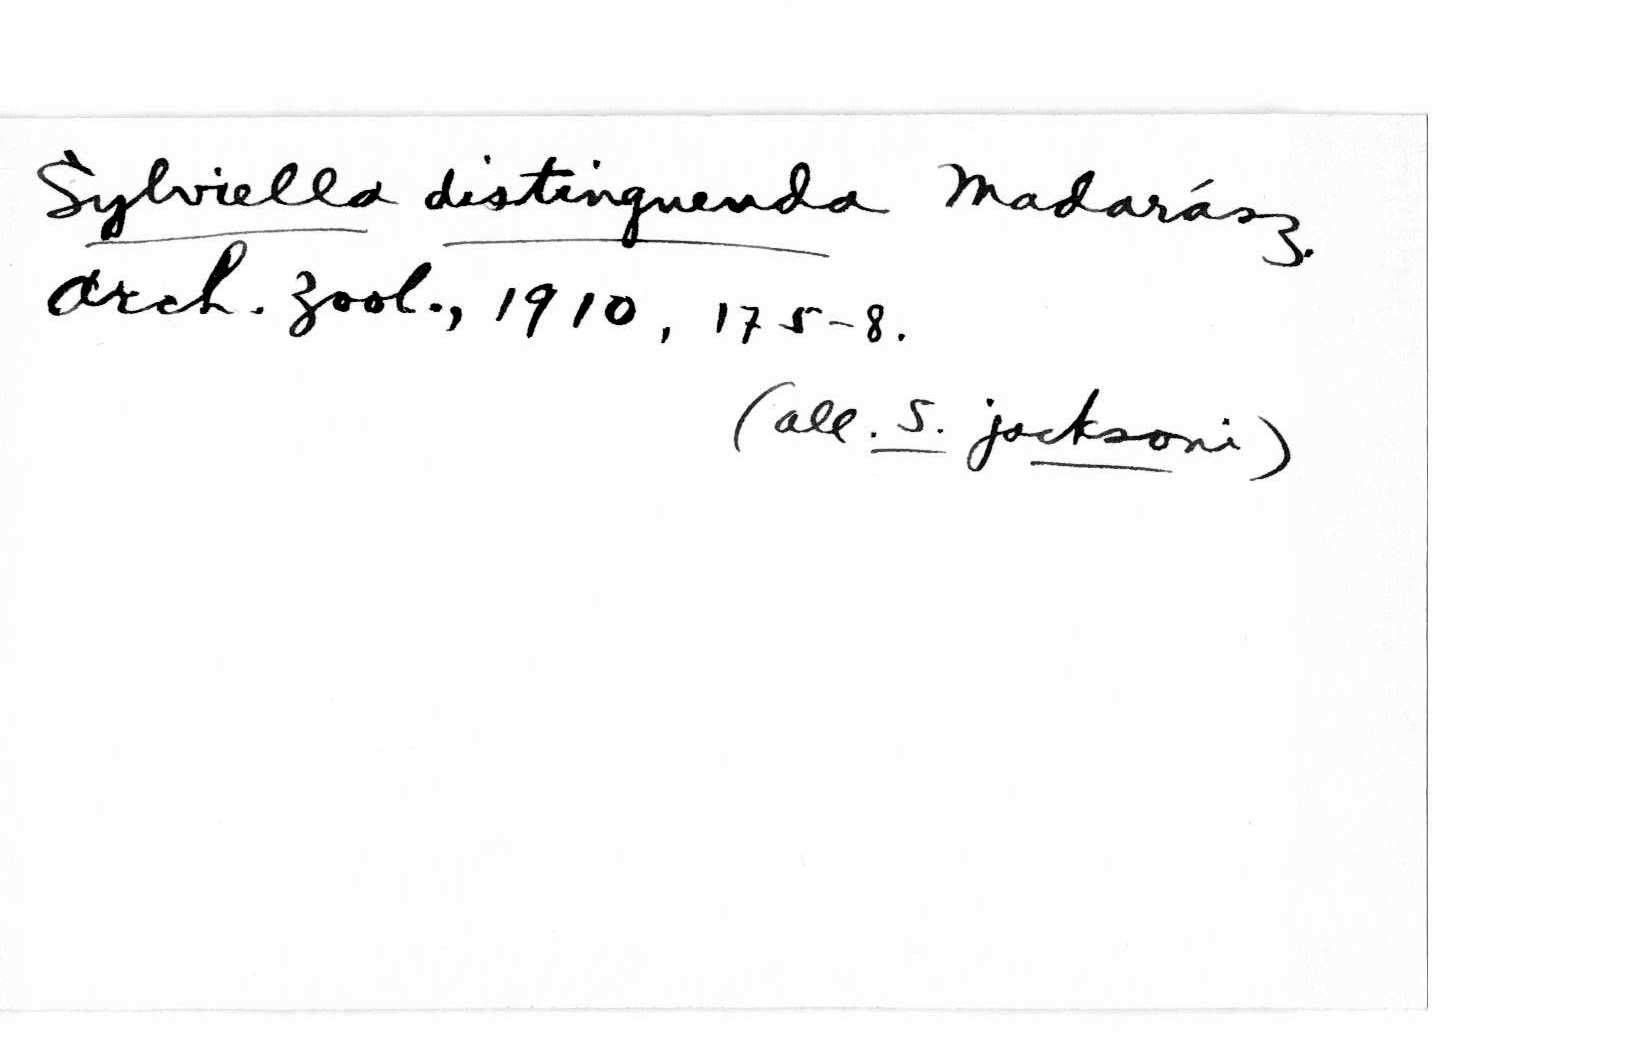 Sylviella distinguenda Madarász.
Arch. Zool., 1910, 175-8.
(all. S. jacksoni)